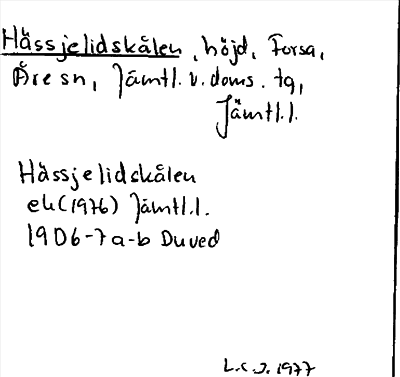 Hässjelidskålen, höjd, Forsa,
Åre sn, Jämtl. v. doms. tg,
Jämtl.l.
Hässjelidskålen
ek (1976) Jämtl.l.
1906-7 a-b Duved
L.C.J. 1977